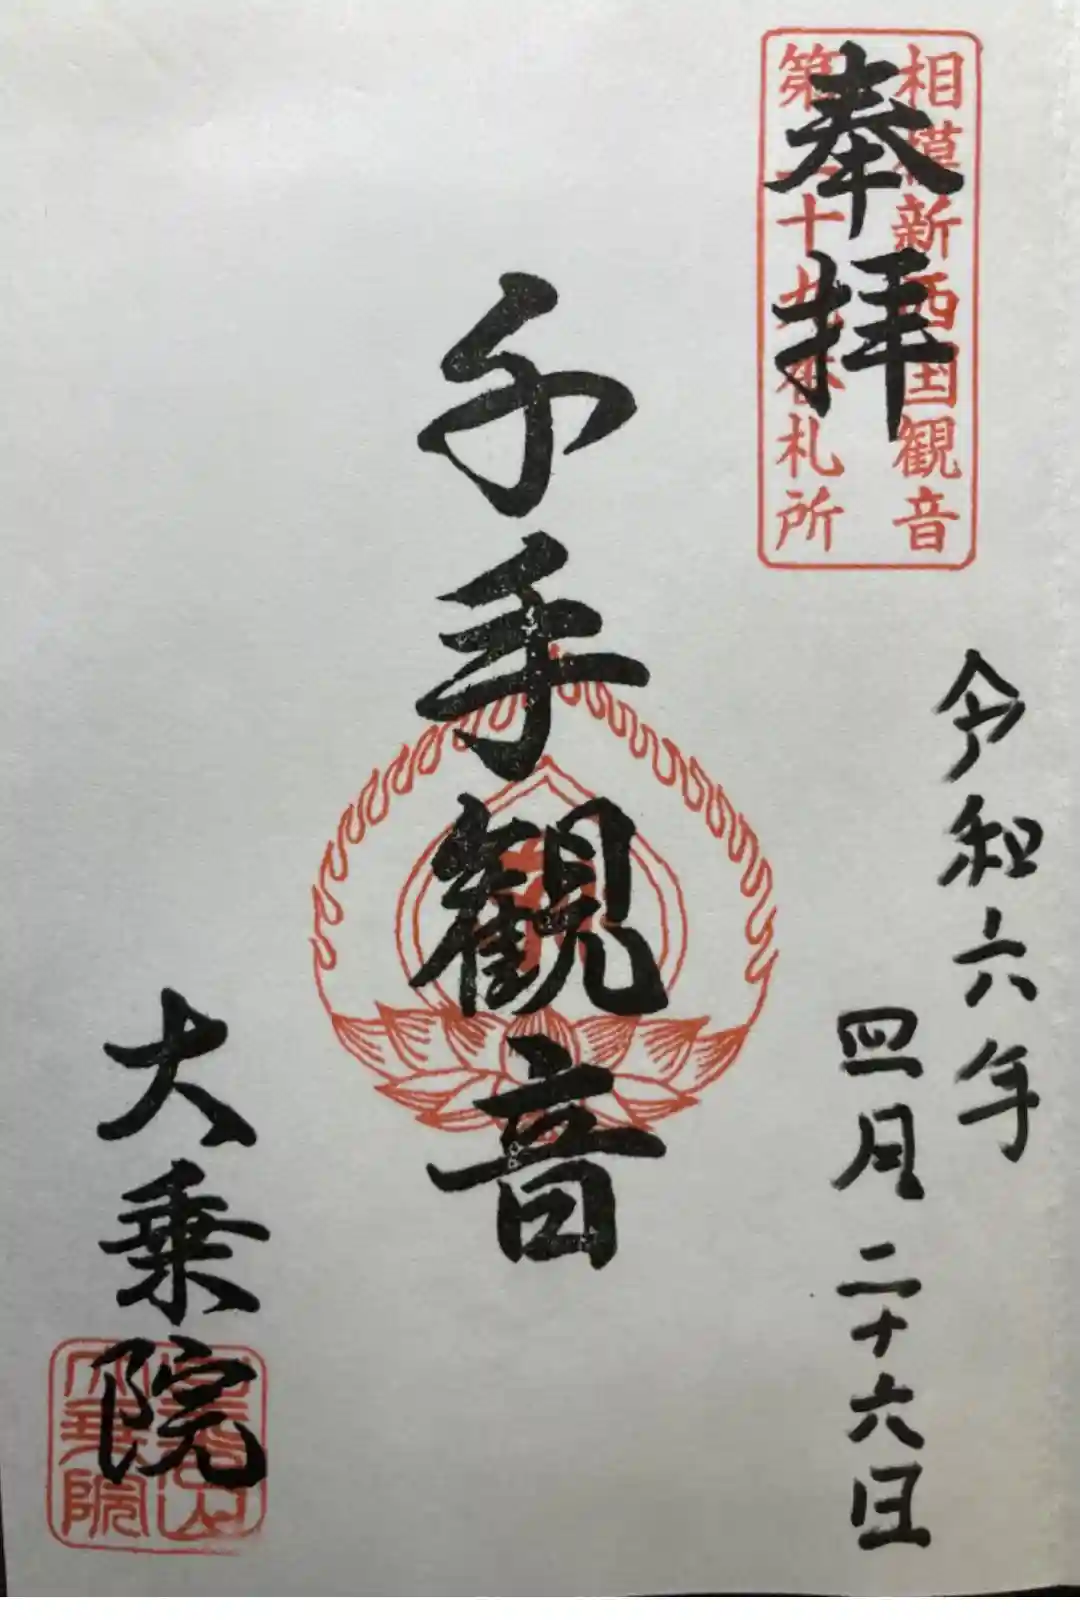 奉拝
相模新西国観音
第 十九番札所
令和六年
四月二十六日
千手観音
大乗院
山
大乗院